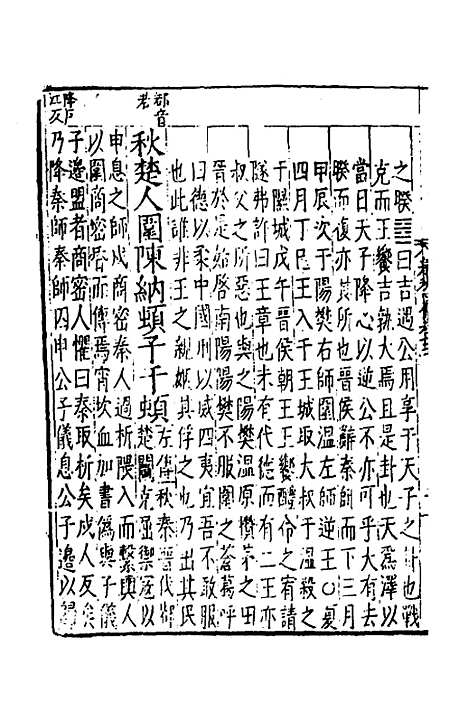 之睽䷥曰吉遇公用享于天子之卦也戰
克而王饗吉孰大焉且是卦也天為澤以
當日天子降心以逆公不亦可乎大有去
睽而復亦其所也晉侯辭秦師而下三月
甲辰次于陽樊右師圍溫左師逆王○夏
四月丁巳王入于王城取大叔于溫殺之
于隰城戊午晉侯朝王王饗醴命之宥請
隧弗許曰王章也未有代德而有二王亦
叔父之所惡也與之陽樊溫原欑茅之田
晉於是始啓南陽陽樊不服圍之蒼葛呼
曰德以柔中國刑以威四夷宜吾不敢服
也此誰非王之親姻其俘之也乃出其民
秋楚人圍陳納頓子于頓
左傳秋秦晉伐鄀
楚鬬克屈禦寇以
申息之師戍商密秦人過析隈入而繫輿人
以圍商密昏而傅焉宵坎血加書僞與子儀
子邊盟者商密人懼曰秦取析矣戍人反矣
乃降秦師秦師囚申公子儀息公子邊以歸
鄀音
老
降戶
江反